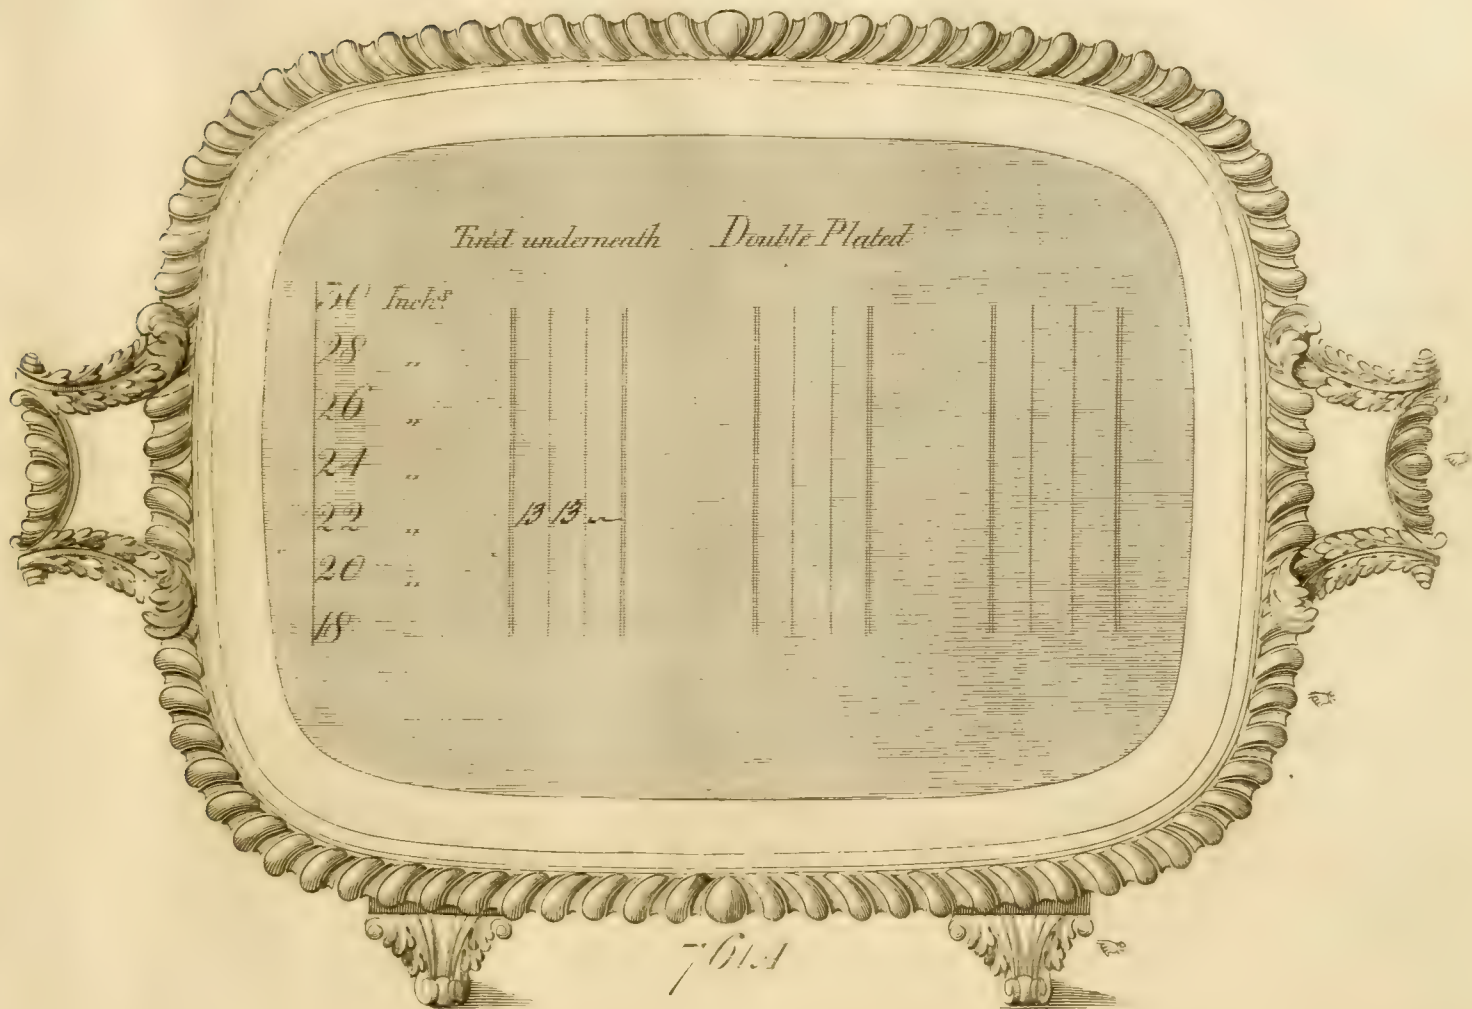 Tin'd underneath Double Plated
30 Inchs
28 „
26 „
24 „
22 „ 13 13 „
20 „
18